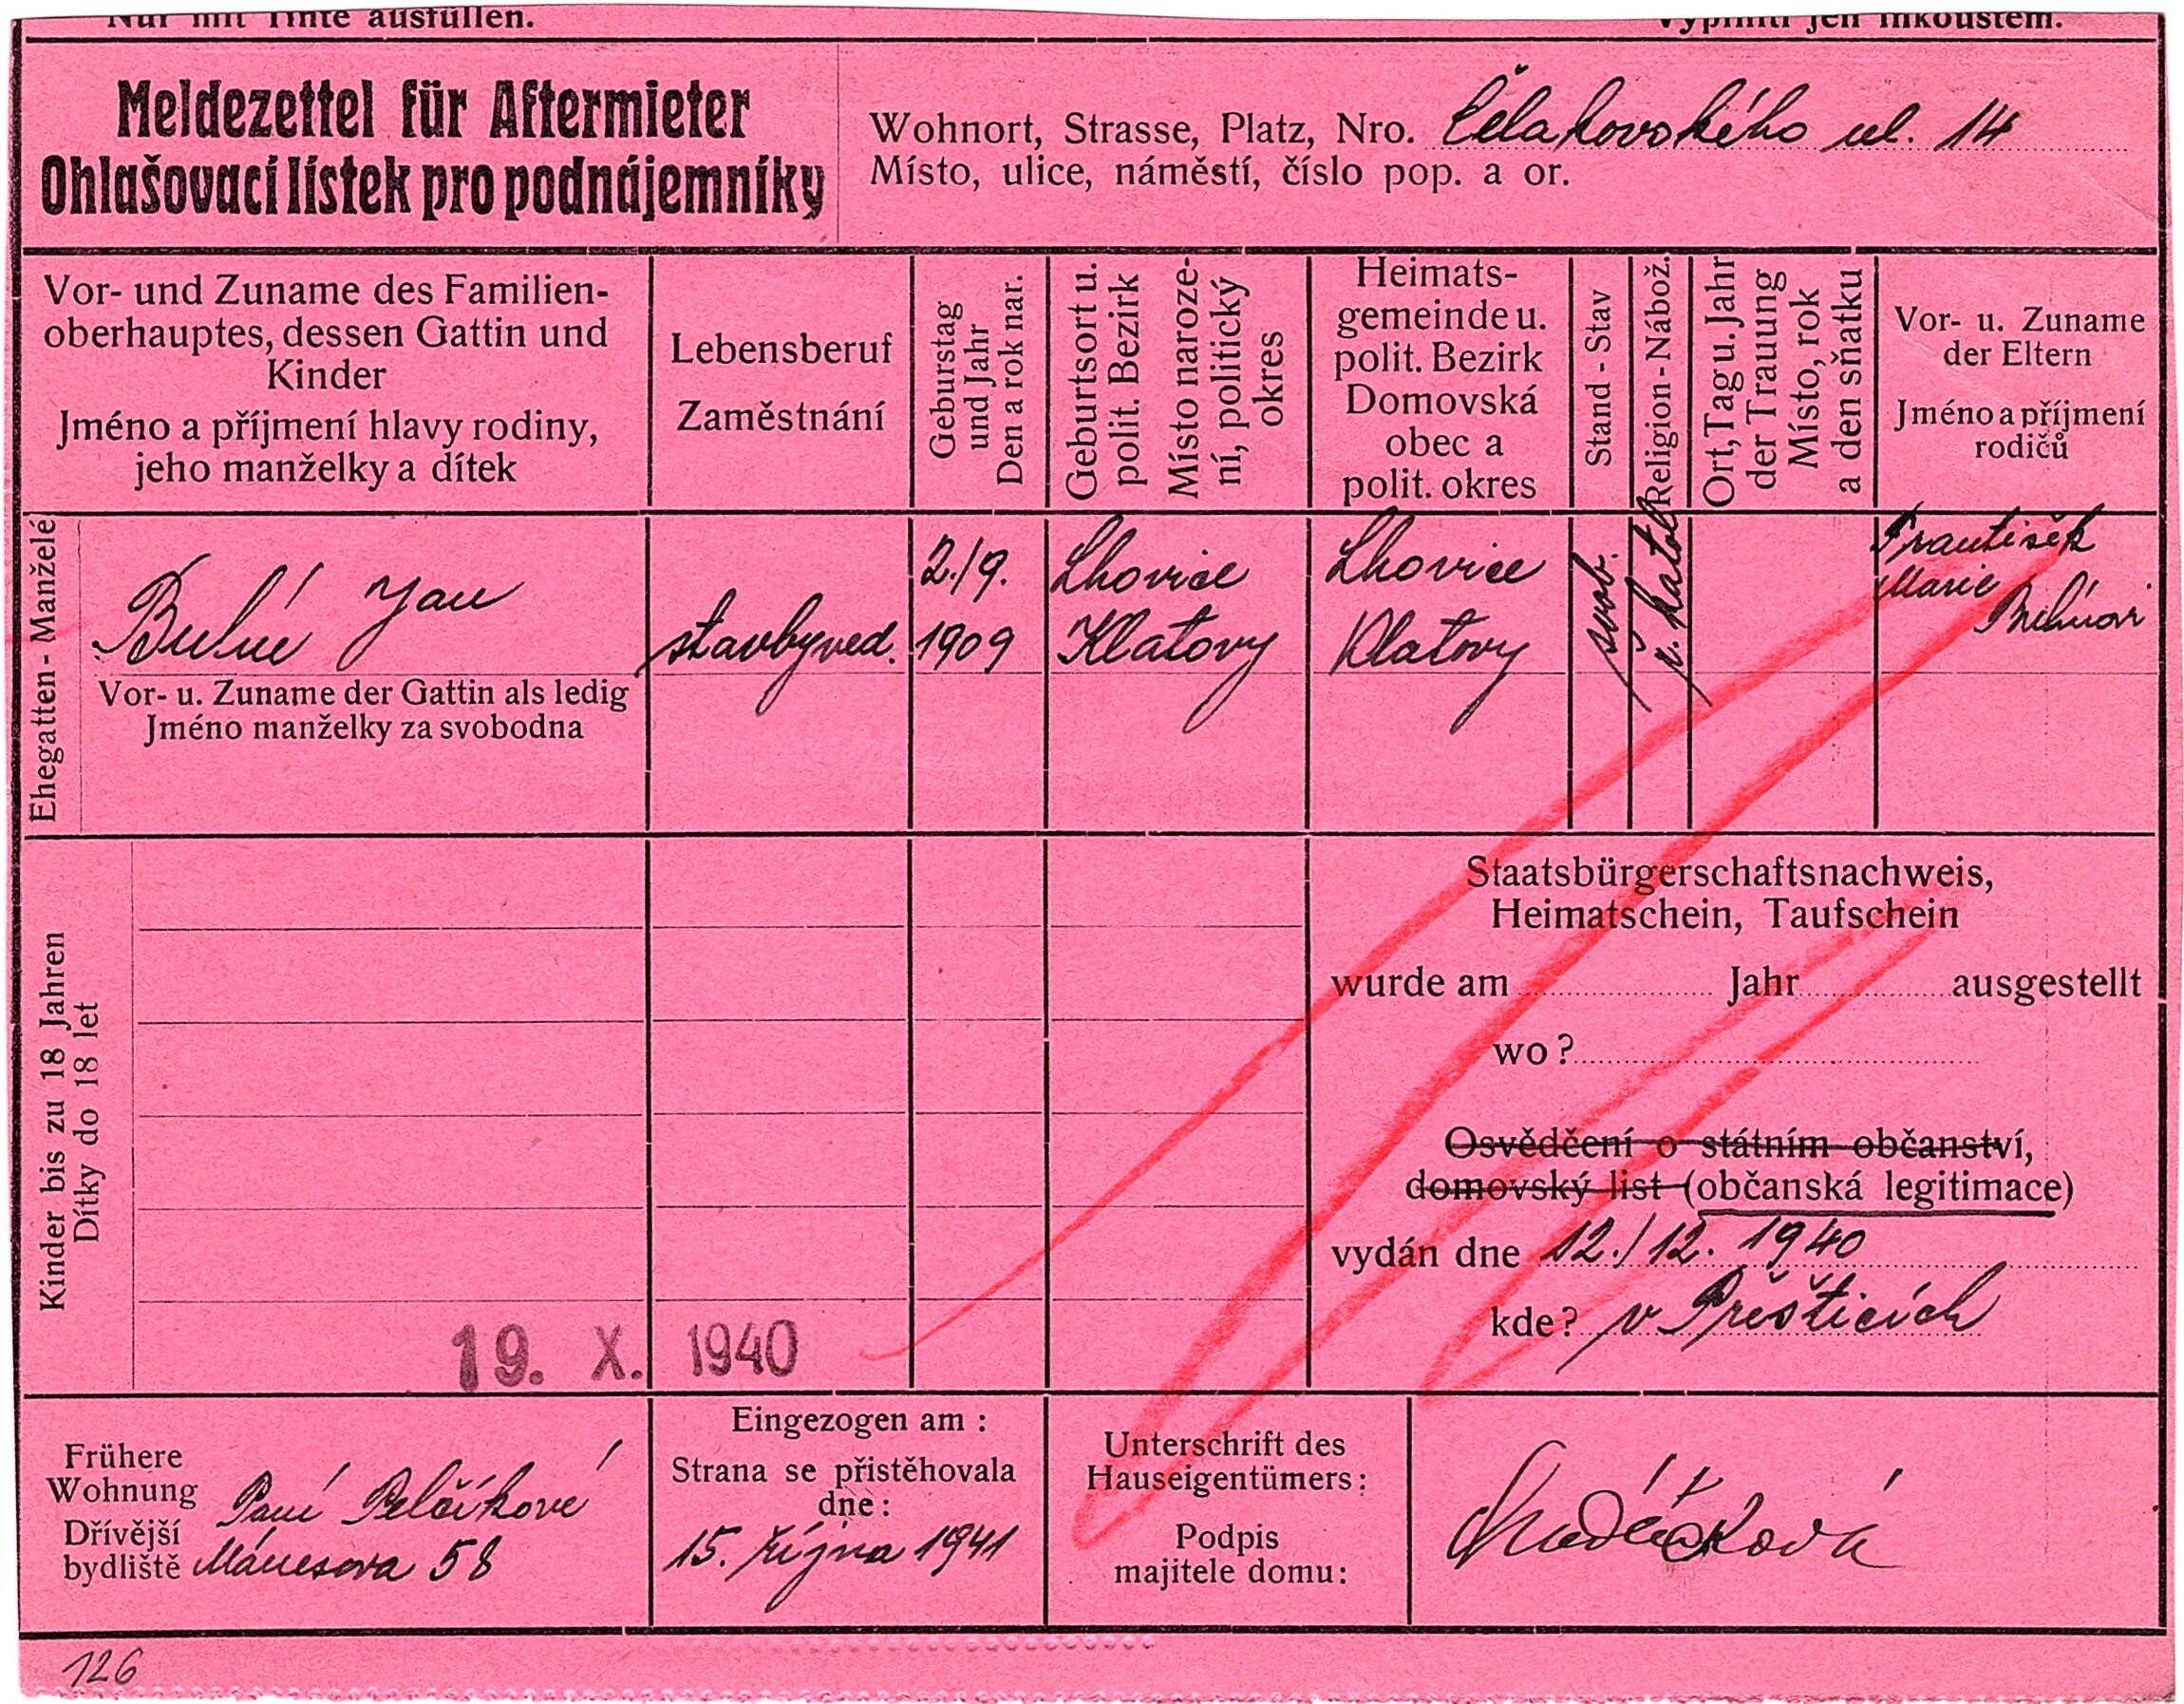 Nur mit Tinte ausfüllen.
Vyplniti jen inkoustem.
Meldezettel für Aftermieter
Ohlašovací lístek pro podnájemníky
Wohnort, Strasse, Platz, Nro. Čelakovského ul. 14
Místo, ulice, náměstí, číslo pop. a or.
Vor- und Zuname des Familien-
oberhauptes, dessen Gattin und
Kinder
Jméno a příjmení hlavy rodiny,
jeho manželky a dítek
Lebensberuf
Zaměstnání
Geburstag
und Jahr
Den a rok nar.
Geburtsort u.
polit. Bezirk
Místo naroze-
ní, politický
okres
Heimats-
gemeinde u.
polit. Bezirk
Domovská
obec a
polit. okres
Stand - Stav
Religion - Nábož.
Ort, Tag u. Jahr
der Trauung
Místo, rok
a den sňatku
Vor- u. Zuname
der Eltern
Jméno a příjmení
rodičů
Ehegatten - Manželé
Jan
stavbyved.
2./9.
1909
Lhovice
Klatovy
Lhovice
Klatovy
svob.
ř. katol.
František
Marie
Vor- u. Zuname der Gattin als ledig
Jméno manželky za svobodna
Kinder bis zu 18 Jahren
Dítky do 18 let
Staatsbürgerschaftsnachweis,
Heimatschein, Taufschein
wurde am Jahr ausgestellt
wo?
Osvědčení o státním občanství,
domovský list (občanská legitimace)
vydán dne 12./12. 1940
kde? v Přešticích
19. X. 1940
Frühere
Wohnung
Dřívější
bydliště
Paní Pelčíkové
Mánesova 58
Eingezogen am :
Strana se přistěhovala
dne :
15. října 1941
Unterschrift des
Hauseigentümers :
Podpis
majitele domu :
126